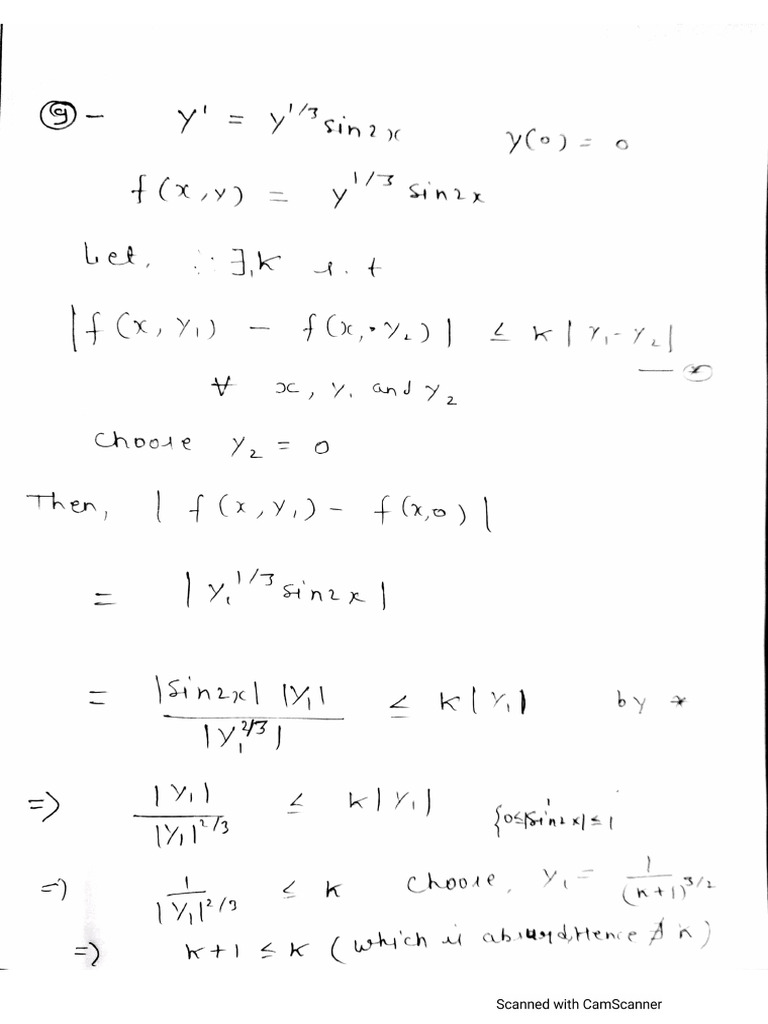 ⑨ - y' = y^{1/3} sin2x    y(0) = 0
f(x,y) = y^{1/3} sin2x
Let, ∃, K s.t
|f(x, y₁) - f(x, y₂)| ≤ K|y₁-y₂|
— *
∀ x, y₁ and y₂
choose y₂ = 0
Then, | f(x, y₁) - f(x,0) |
= | y₁^{1/3} sin2x |
= |sin2x| |y₁| / |y₁^{2/3}| ≤ K|y₁|    by *
=> |y₁| / |y₁|^{2/3} ≤ K|y₁|    {0≤|sin2x|≤1
=> 1 / |y₁|^{2/3} ≤ K    choose, y₁ = 1 / (K+1)^{3/2}
=> K+1 ≤ K (which is absurd, Hence ∄ K)
Scanned with CamScanner